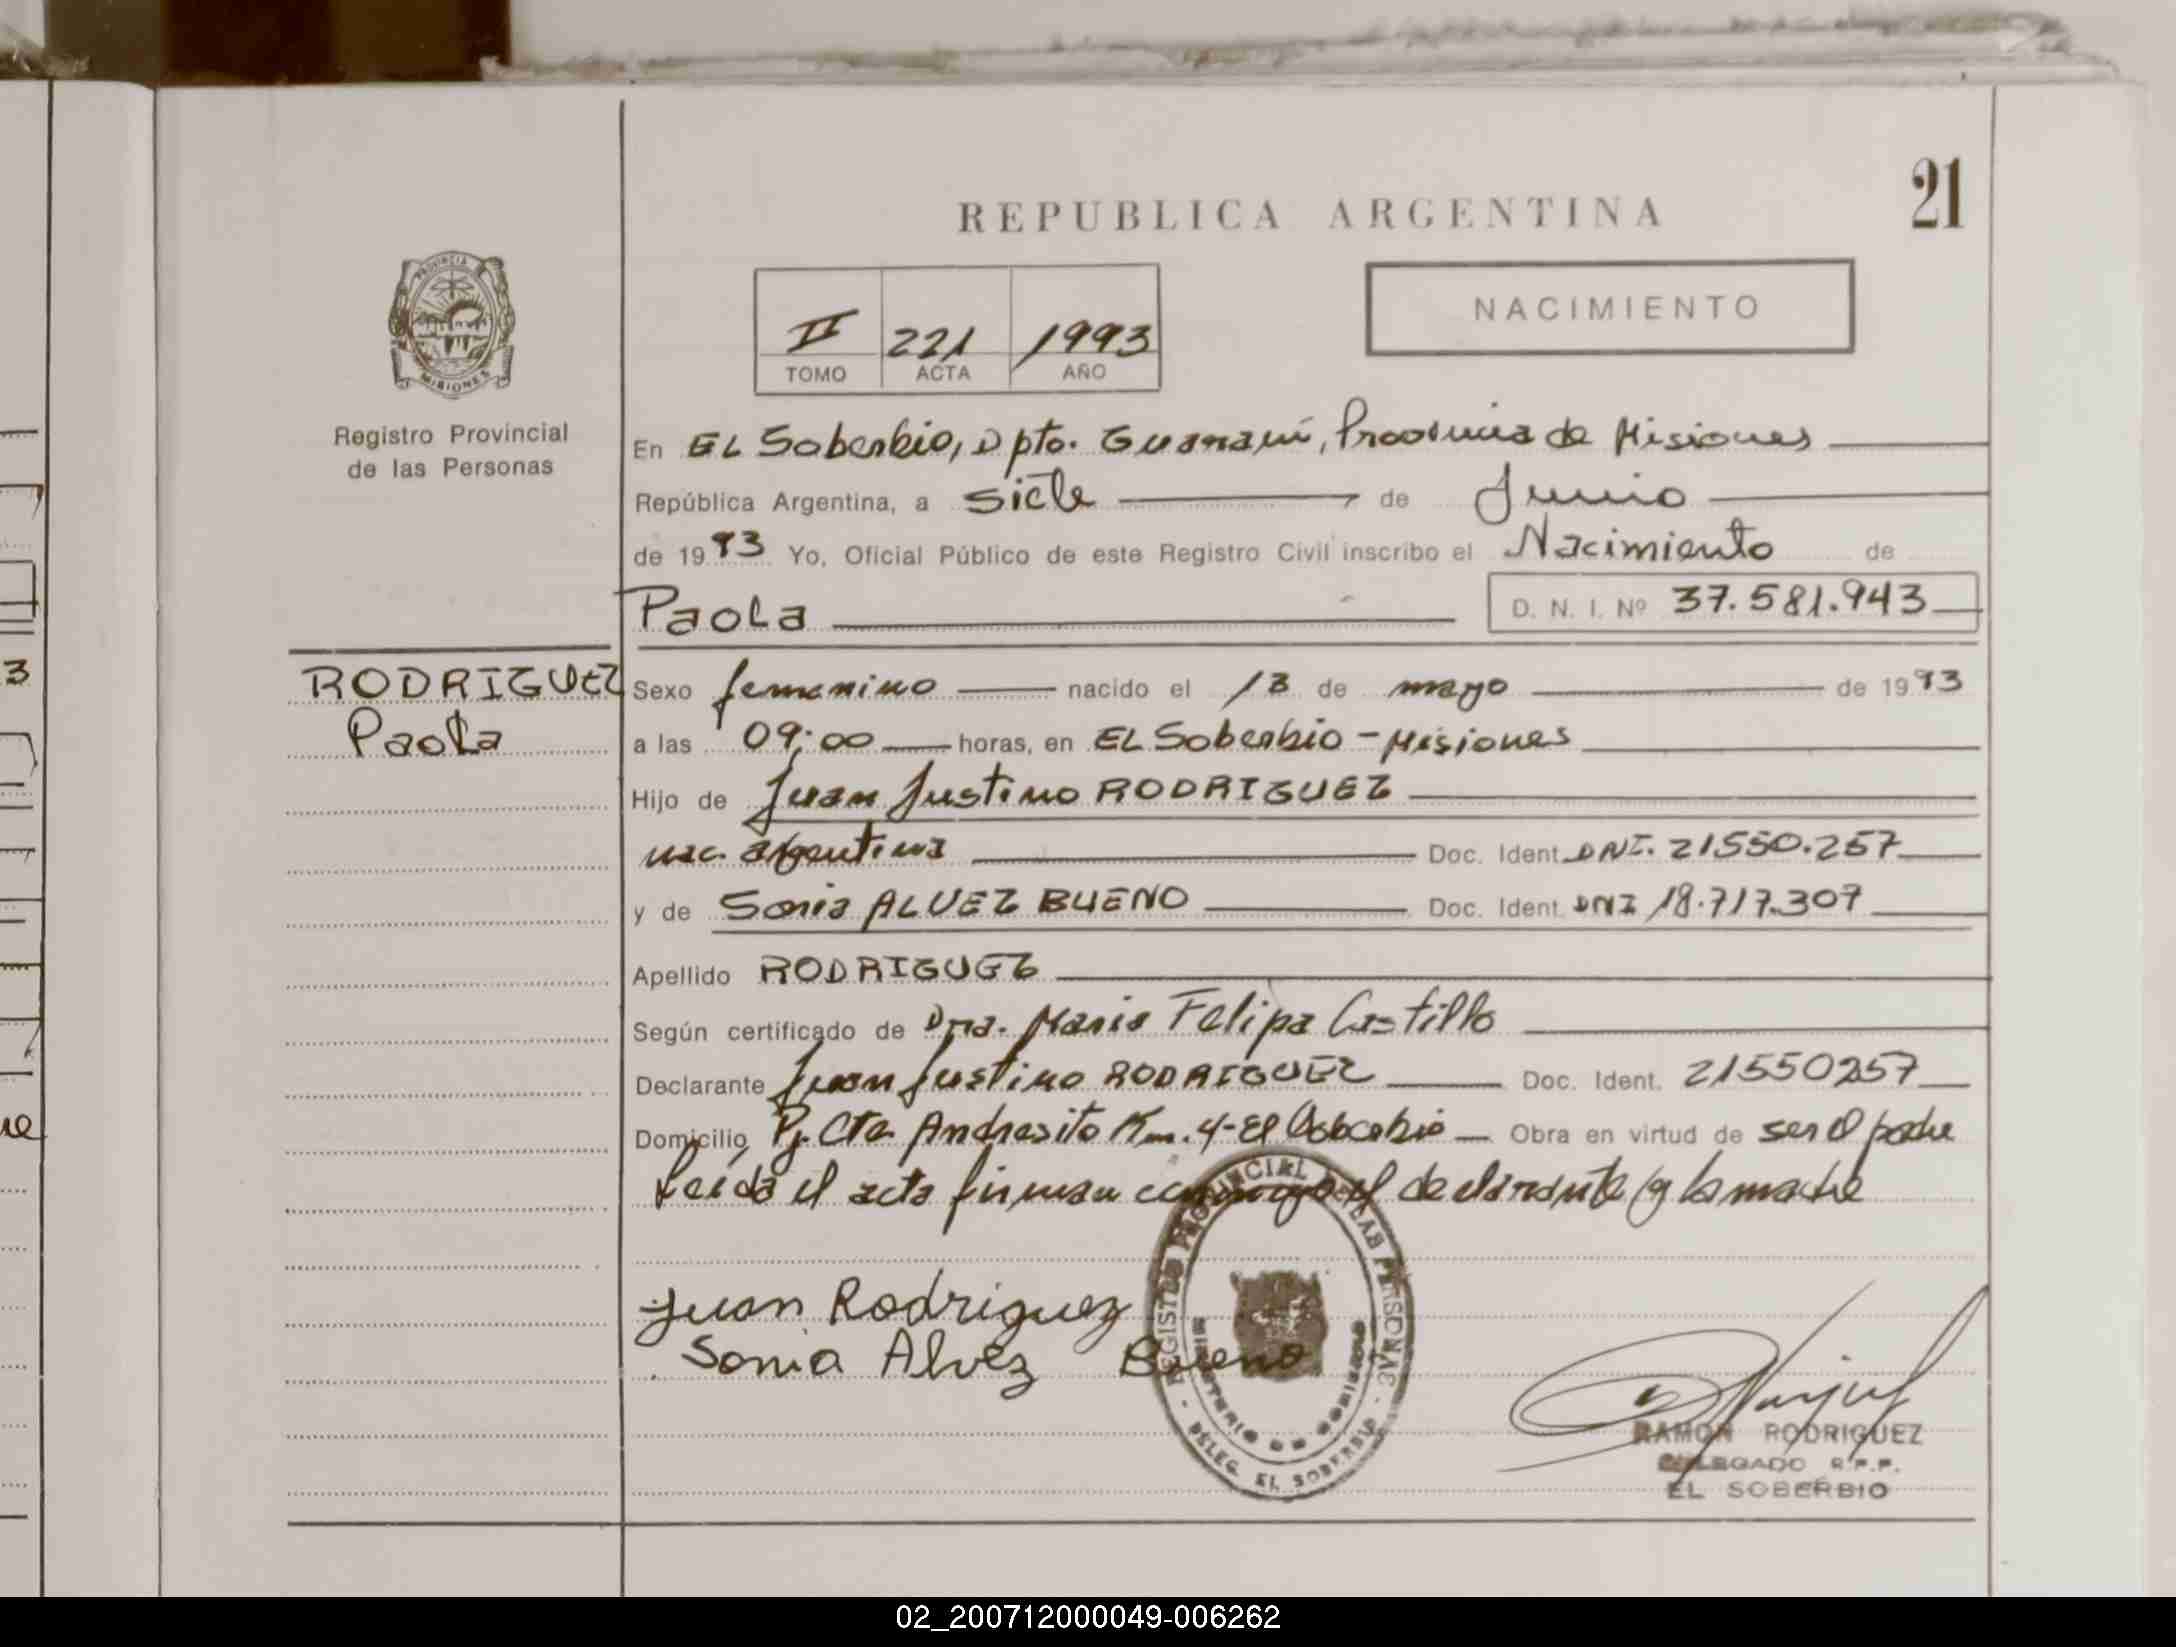 21
REPUBLICA ARGENTINA
PROVINCIA
MISIONES
Registro Provincial
de las Personas
II 221 1993
TOMO ACTA AÑO
NACIMIENTO
En EL Soberbio, Dpto. Guaraní, Provincia de Misiones
República Argentina, a siete de Junio
de 1993 Yo, Oficial Público de este Registro Civil inscribo el Nacimiento de
Paola D. N. I. Nº 37.581.943
RODRIGUEZ
Paola
Sexo femenino nacido el 13 de mayo de 1993
a las 09:00 horas, en EL Soberbio - Misiones
Hijo de Juan Justino RODRIGUEZ
nac. argentina Doc. Ident. DNI. 21550.257
y de Sonia ALVEZ BUENO Doc. Ident. DNI 18.717.307
Apellido RODRIGUEZ
Según certificado de Dra. Maria Felipa Castillo
Declarante Juan Justino RODRIGUEZ Doc. Ident. 21550257
Domicilio Pj. Cte Andresito Km. 4-El Soberbio Obra en virtud de ser el padre
Leída el acta firman conmigo el declarante y la madre
Juan Rodriguez
Sonia Alvez Bueno
REGISTRO PROVINCIAL DE LAS PERSONAS
MINISTERIO DE GOBIERNO
- DELEG. EL SOBERBIO -
RAMON RODRIGUEZ
DELEGADO R.P.P.
EL SOBERBIO
02_200712000049-006262